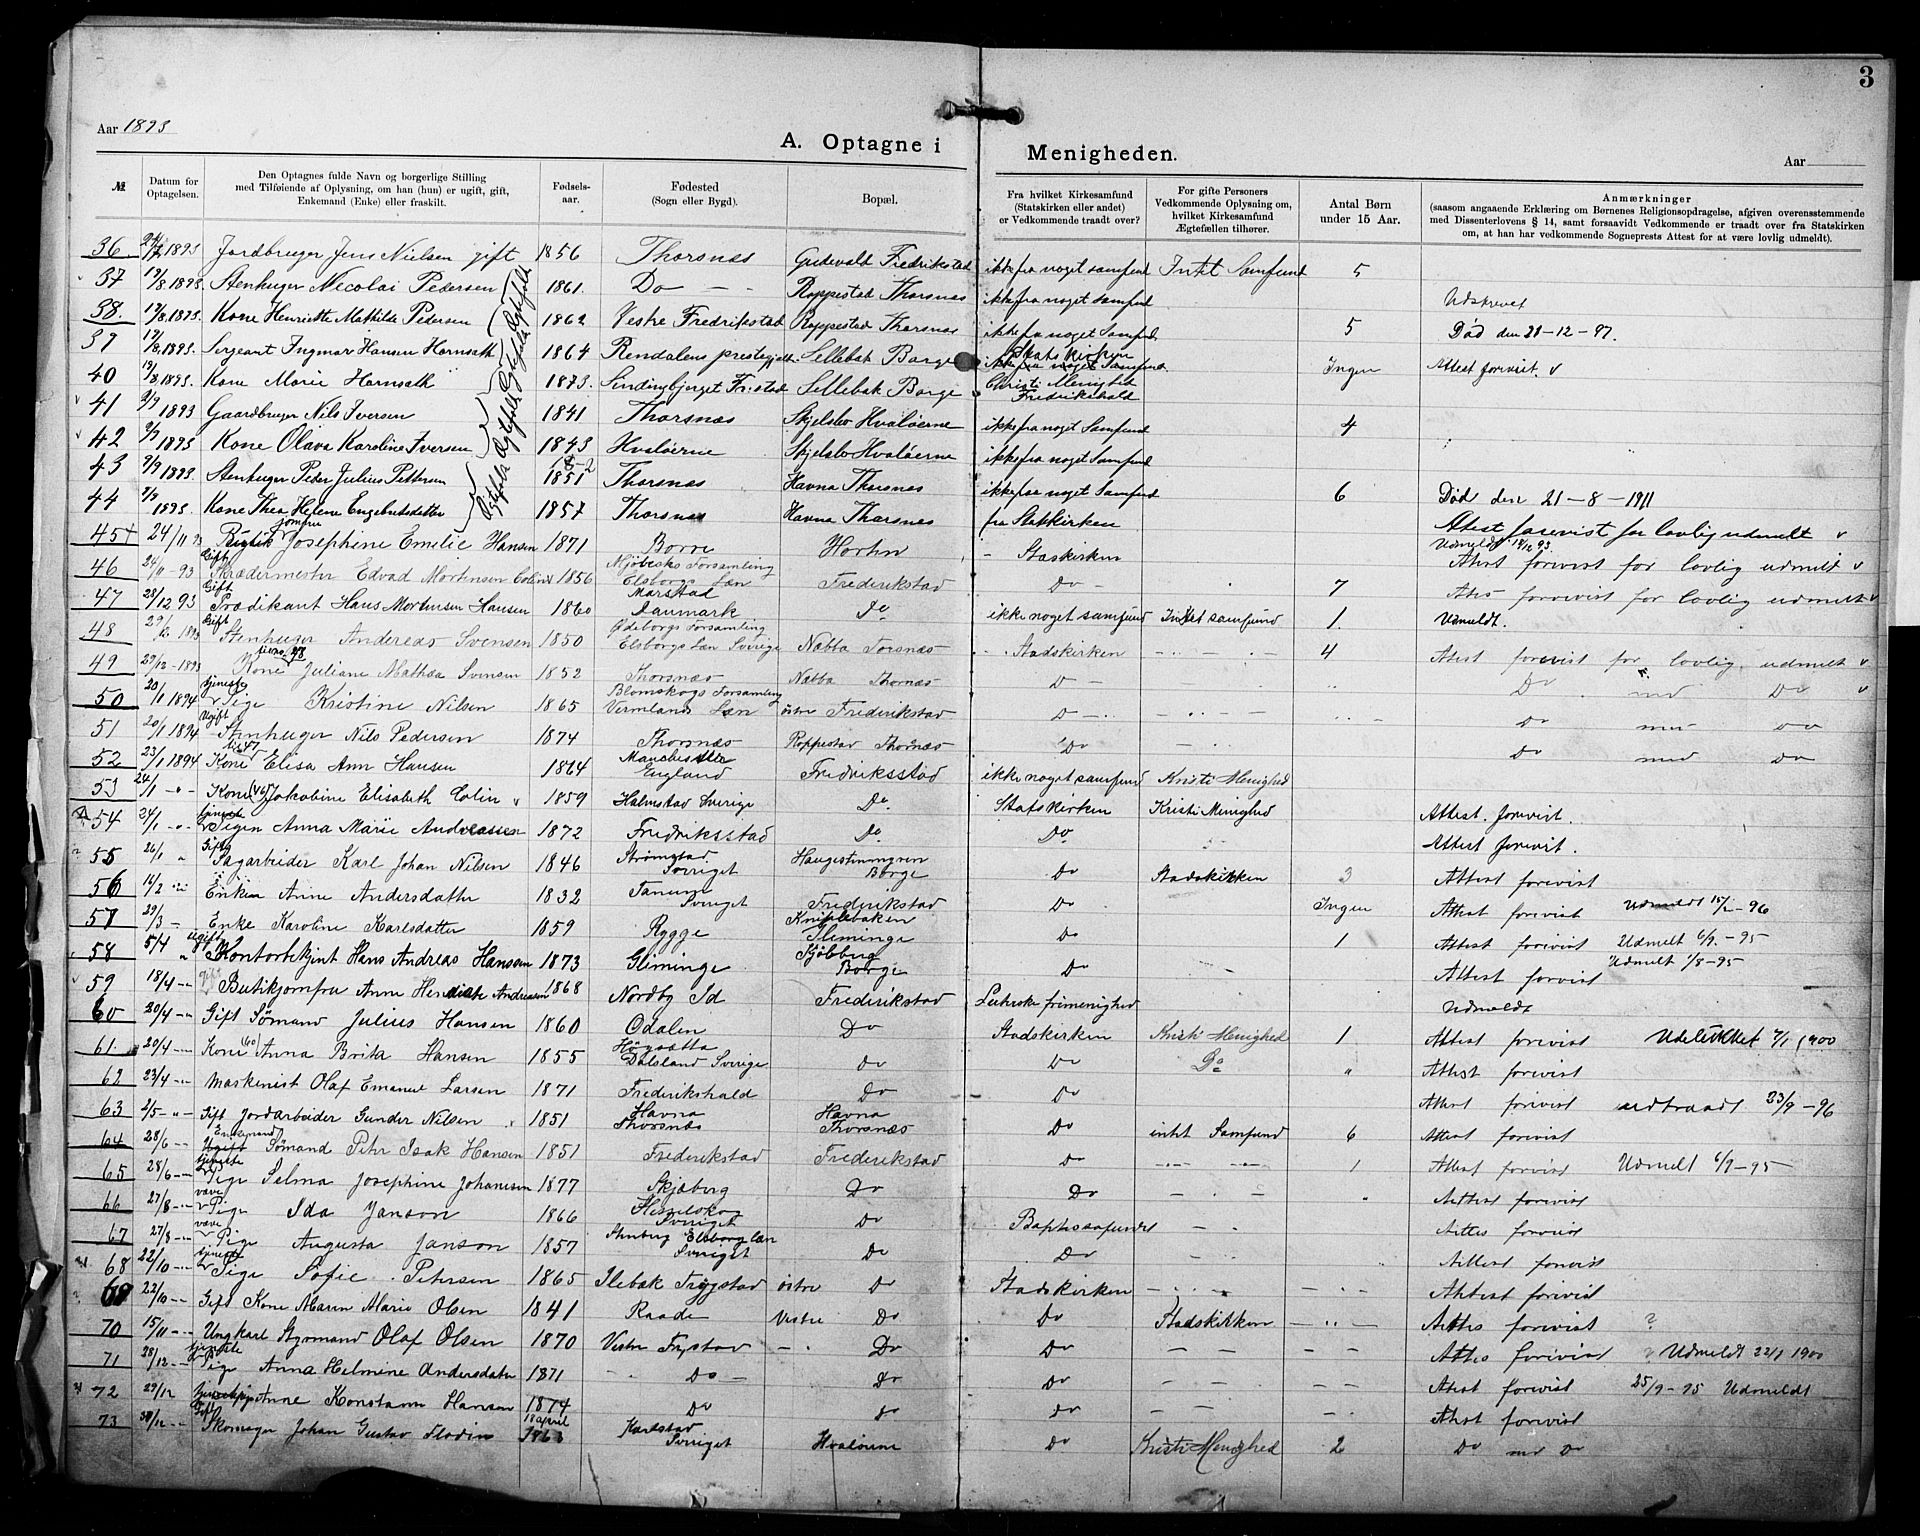 3
Aar 1893
A. Optagne i Menigheden.
Aar
№ Datum for Optagelsen. Den Optagnes fulde Navn og borgerlige Stilling med Tilføiende af Oplysning, om han (hun) er ugift, gift, Enkemand (Enke) eller fraskilt. Fødsels-aar. Fødested (Sogn eller Bygd). Bopæl. Fra hvilket Kirkesamfund (Statskirken eller andet) er Vedkommende traadt over? For gifte Personers Vedkommende Oplysning om, hvilket Kirkesamfund Ægtefællen tilhører. Antal Børn under 15 Aar. Anmærkninger (saasom angaaende Erklæring om Børnenes Religionsopdragelse, afgiven overensstemmende med Dissenterlovens § 14, samt forsaavidt Vedkommende er traadt over fra Statskirken om, at han har vedkommende Sogneprests Attest for at være lovlig udmeldt).
36 1893 Jordbruger Jens Nielsen gift 1856 Thorsnæs Gudevald Fredrikstad ikke fra noget samfund Intet Samfund 5
37 17/8 1893 Stenhuger Nicolai Pedersen 1861 Do Roppestad Thorsnæs ikke fra noget samfund Udskrevet
38. 17/8 1893. Kone Henriette Mathilde Pedersen 1862 Vestre Fredrikstad Roppestad Thorsnæs ikke fra noget Samfund 5 Død den 21-12-97.
39 17/8 1893. Sergeant Ingmar Hansen Hornsæth 1864 Rendalens prestegjeld Sellebak Borge Statskirken Ingen Attest forevist. v
40 17/8 1893. Kone Marie Hornsæth 1873. Fr.stad Sellebak Borge Christi Menighed Fredrikshald
41 3/9 1893 Gaardbruger Nils Iversen 1841 Thorsnæs Skjelsbo Hvaløerne ikke fra noget Samfund 4
42 3/9 1893 Kone Olava Karoline Iversen 1843 Hvaløerne Skjelsbo Hvaløerne ikke fra noget Samfund
43 3/9 1893. Stenhuger Peder Julius Pettersen 1851 Thorsnæs Havna Thorsnæs ikke fra noget Samfund 6 Død den 21-8-1911
44 3/9 1893. Kone Thea Helene Engebretsdatter 1857 Thorsnæs Havna Thorsnæs fra Statskirken
45 24/11 93 Butik jomfru Josephine Emilie Hansen 1871 Borre Horten - Staskirken Attest forevist for lovlig udmelt v Udmeldt 18/12 93
46 24/11 - 93 Gift Skrædermester Edvad Mortensen Colin 1856 Forsamling Elsborgs Læn Frederikstad Do - 7 Atest forevist for lovlig udmeldt v
47 28/12 93 Gift Prædikant Hans Mortensen Hansen 1860 Marstad Danmark Do ikke noget samfund Intet samfund 1. Udmeldt.
48 29/12 1893 Gift Stenhuger Andereas Svensen 1850 Ødeborgs Forsamling Elsborgs Læn Sverige Nabba Torsnæs Stadskirken 4 Atest forevist for lovlig udmelt v
49 29/12-1893 Kone til no. 48 Juliane Mathea Svensen 1852 Thorsnæs Nabba Thornæs D - Do med Do v
50 20/1 1894 tjeneste Pige Kristine Nilsen 1865 Blomskogs Forsamling Vermlands Læn østre Frederikstad D - Do med Do
51 20/1 1894 Ugift Stenhuger Nils Pedersen 1874 Thorsnæs Roppestad Thornæs Do Do med Do
52 23/1 1894 Kone til 47 Elisa Ann Hansen 1864 Manchester England Fredriksstad ikke noget samfund Kristi Menighed
53 24/1 -"- Kone (46) Jakobine Elisabeth Colin 1859 Halmstad Sverige Do. Statskirken Kristi Menighed Attest. forevist.
54 24/1 -"- tjeneste Pigen Anna Marie Andreassen 1872 Fredriksstad Do Do Attest forevist.
55 26/1 " Gift Sagarbeider Karl Johan Nilsen 1846 Strømstad Sveriget Borge Do Stadskirken 3 Attest forevist
56 14/2 Enken Anne Andersdatter 1832 Tanum Sveriget Frederikstad Do Ingen Attest forevist Udmeldt 15/1-96
57 29/3 - Enke Karoline Karlsdatter 1859 Rygge Do 1 Attest forevist Udmelt 6/9.-95
58 5/4 " ugift Kontorbetjent Hans Andreas Hansen 1873 Gliminge Borge Do Attest forvist Udmelt 1/8-95
59 18/4 -"- gift Butikjomfru Anne Andreasen 1868 Nordby Id Frederikstad Luterske frimenighed Udmeldt
60 20/4 -"- Gift Sømand Julius Hansen 1860 Odalen Do Stadskirken Kristi Menighed 1 Attest forevist Udelukket 7/1 1900
61. 20/4 -"- Kone (60) Anna Brita Hansen 1855 Dalsland Sverige Do Do Do " Attest forevist
62 23/4 -"- Maskenist Olaf Emanuel Larsen 1871 Frederikshald Do Do Attest forevist udtraadt 23/9-96
63 2/5 -"- Gift Jordarbeider Gunder Nilsen 1851 Havna Thorsnæs Havna Thorsnæs Do intet Samfund 6 Attest forevist
64 28/6 -"- Enkemand Sømand Peter Isak Hansen 1851 Frederikstad Frederikstad Do 1 Attest forvist Udmelt 6/9-95
65 28/6 -"- tjeneste Pige Selma Josephine Johannesen 1877 Skjeberg Do Do " Attest forevist
66 27/8 -"- væve Pige Ida Janson 1866 Sveriget Do Baptissafundet Attes forevist
67 27/8 -"- væve Pige Augusta Janson 1857 Elsborg Læn Sveriget Do Do Attest forevist
68 22/10 -"- tjeneste Pige Sofie Petersen 1865 Ilebek Trøgstad østre Do Stadskirken Attest forevist
69 22/10 -"- Gift Kone Maren Marie Olsen 1841 Raade Vestre Do Do Stadskirken Attes forevist ?
70 15/11 -"- Ungkarl Styrmand Olaf Olsen 1870 Vestre Frstad -"- Do Do Attes forevist ? Udmeldt 22/1 1900
71 28/12 -"- tjeneste Pige Anna Helmine Andersdatter 1871 Do - Do Do Atest forevist 25/9-95 Udmeldt
72 29/12 Anne Konstanse Hansen 1874 Do do Do Atest forevist
73 30/12 -"- Gift Skomager Johan Gustav Flodin 18 april Karlstad Sveriget Hvaløerne Do Kristi Menighed 2 Do med Do